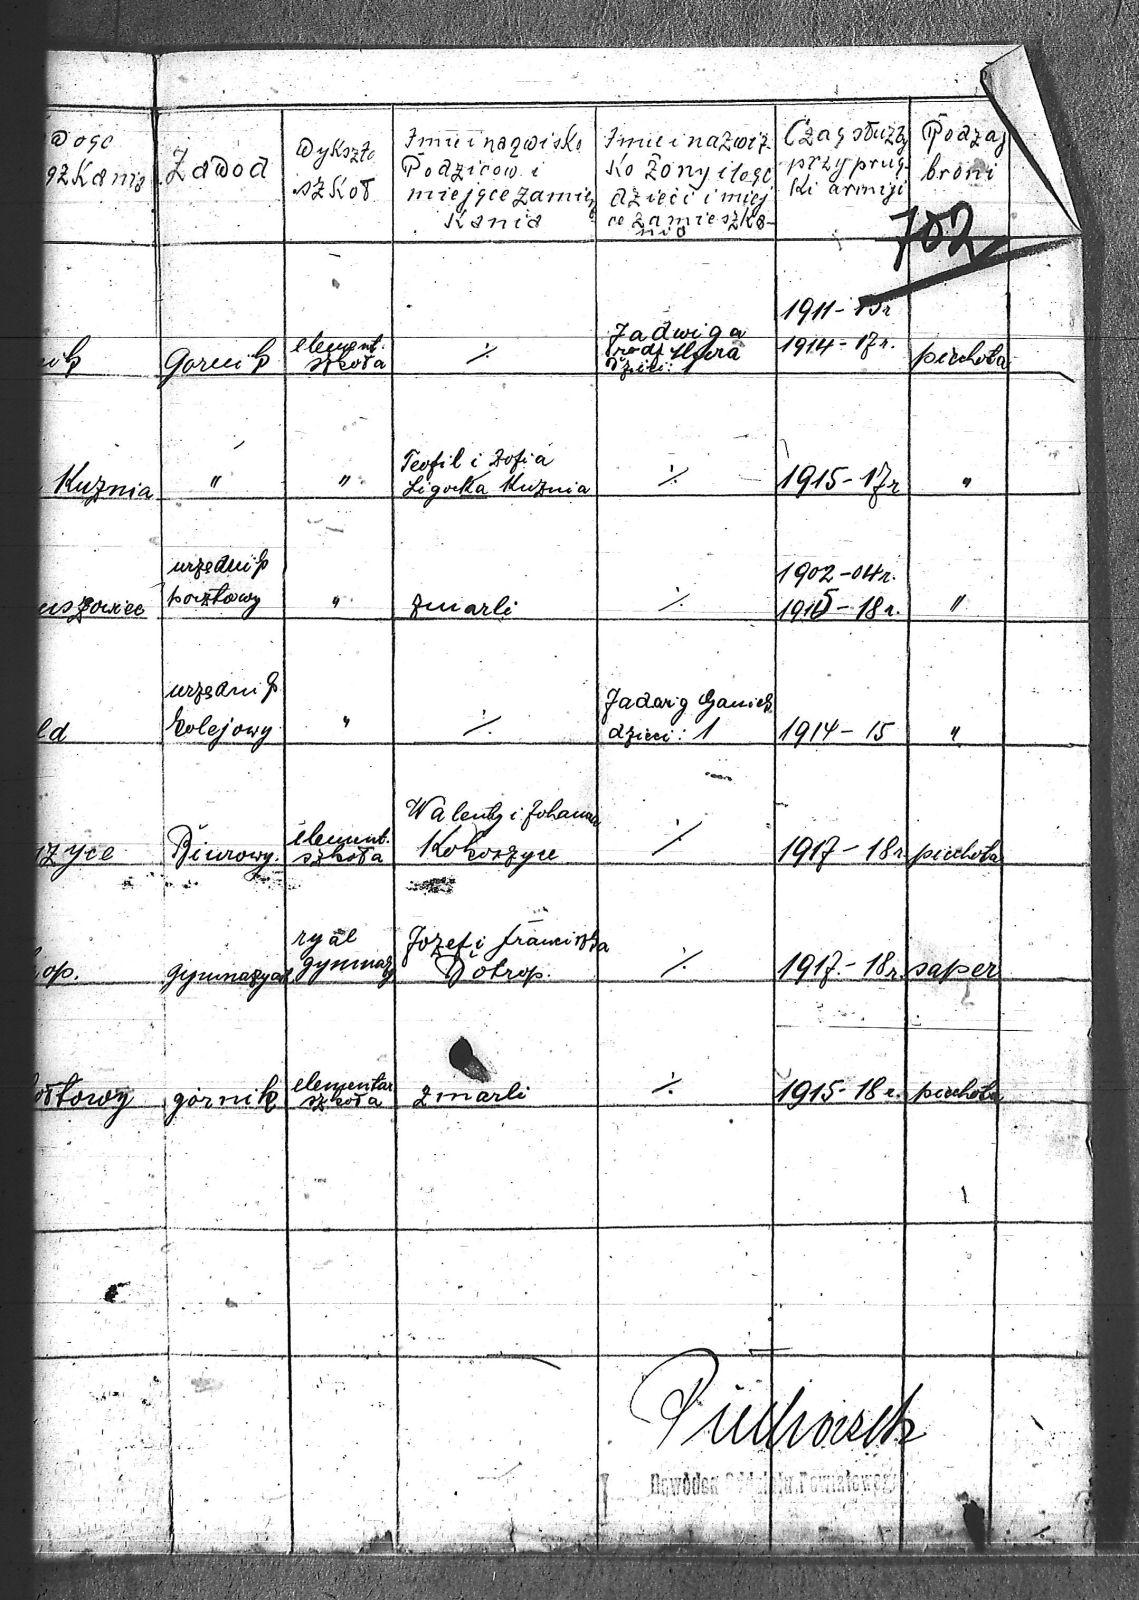 Zawod
Wykszto
szkoł
Imie i nazwisko
Rodzicow i
miejsce zamiesz
kania
Imie i nazwiz
ko Żony ilość
dzieci i miej
ce zamieszka-
nia
Czas słuzby
przy prus
ki armiji
Rodzaj
broni
702
Gornik
element.
szkoła
·/.
Jadwiga
Dzieci: 1
1911-13r
1914-17r.
piechota
Kuznia
"
"
Teofil i Zofia
Ligocka Kuznia
·/.
1915-17r
"
urzędnik
pocztowy
"
zmarli
·/.
1902-04r.
1915-18r.
"
urzędnik
kolejowy
"
·/.
dzieci: 1
1914-15
"
Biurowy.
element.
szkoła
Walenty i Johanna
Kokoszyce
·/.
1917-18r
piechota
gymnazyast
ryal
gymnaz
Jozef i Franciszka
Biotrop.
·/.
1917.-18r.
saper
górnik
elementar
szkoła
zmarli
·/.
1915-18r.
piechota
Dowódca Oddziału Powiatowego